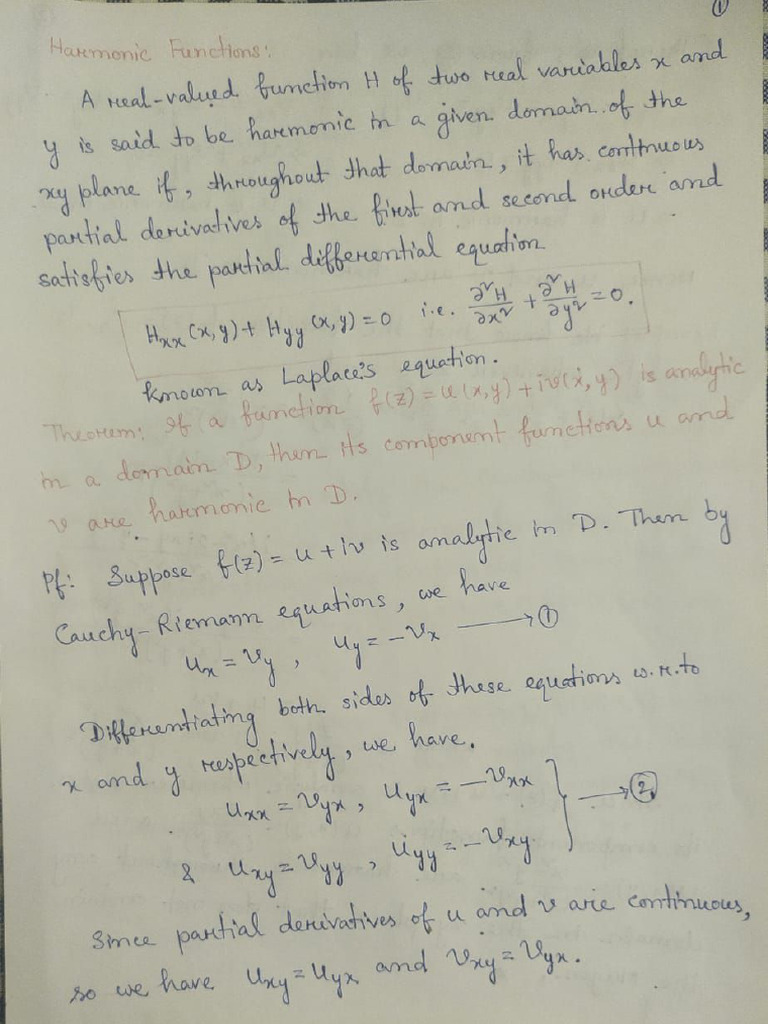 ①
Harmonic Functions:
A real-valued function H of two real variables x and
y is said to be harmonic in a given domain of the
xy plane if, throughout that domain, it has continuous
partial derivatives of the first and second order and
satisfies the partial differential equation
Hₓₓ(x,y) + H_yy(x,y) = 0 i.e. ∂²H/∂x² + ∂²H/∂y² = 0.
known as Laplace's equation.
Theorem: If a function f(z) = u(x,y) + iv(x,y) is analytic
in a domain D, then its component functions u and
v are harmonic in D.
Pf: Suppose f(z) = u + iv is analytic in D. Then by
Cauchy-Riemann equations, we have
uₓ = v_y, u_y = -vₓ → ①
Differentiating both sides of these equations w.r.to
x and y respectively, we have.
uₓₓ = v_yx, u_yx = -vₓₓ
& u_xy = v_yy, u_yy = -v_xy } → ②
Since partial derivatives of u and v are continuous,
so we have u_xy = u_yx and v_xy = v_yx.